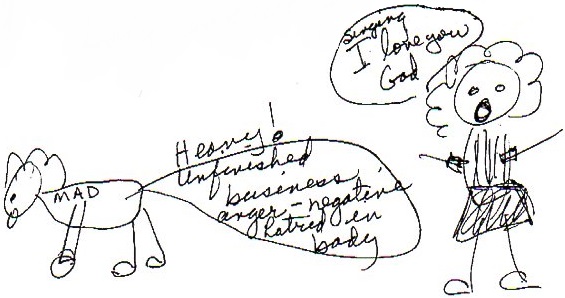 Singing
I love you
God
Heavy!
Unfinished
business,
anger - negative
hatred in
body
MAD